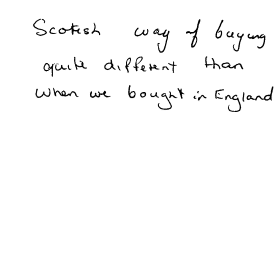 Scottish way of buying
quite different than
when we bought in England